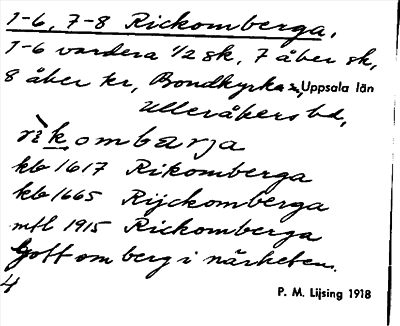 1-6, 7-8 Rickomberga,
1-6 vardera 1/2 sk, 7 åber sk,
8 åber kr, Bondkyrka s, Uppsala län
Ulleråkers hd,
rìk, ombarja
kb 1617 Rikomberga
kb 1665 Rijckomberga
mtl 1915 Rickomberga
Gott om berg i närheten.
4
P. M. Lijsing 1918